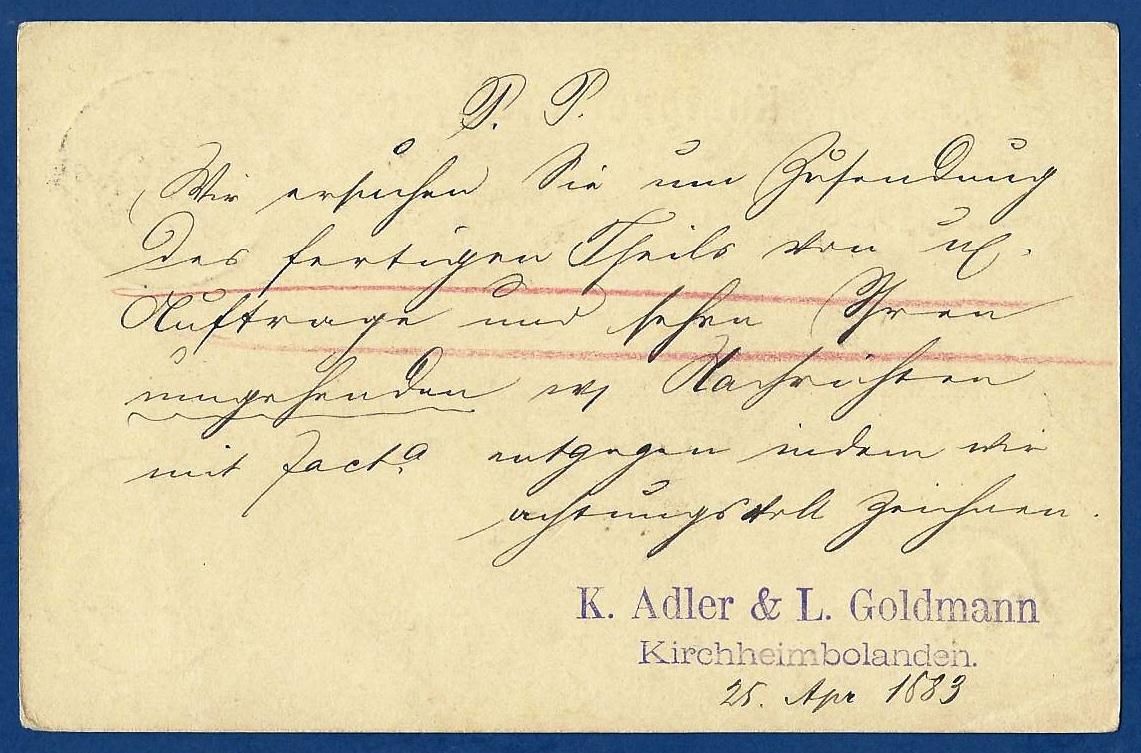 P. P.
Wir ersuchen Sie um Zusendung
des fertigen Theils von
Auftrage und sehen Ihren
umgehenden Nachrichten
mit Facta entgegen indem wir
achtungsvoll zeichnen.
K. Adler & L. Goldmann
Kirchheimbolanden.
25. Apr 1883